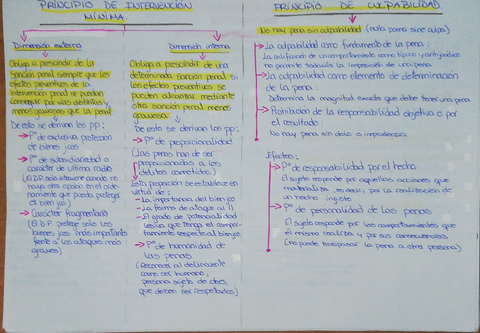 PRINCIPIO DE INTERVENCIÓN
MÍNIMA
Dimensión externa
Obliga a prescindir de la
sanción penal siempre que los
efectos preventivos de la
intervención penal se puedan
conseguir por vías distintivas y
menos gravosas que la penal
De esto se derivan los PP:
→ Pº de exclusiva protección
de bienes jcos
→ Pº de subsidiariedad o
carácter de última ratio
(el D.P. solo interviene cuando no
haya otra opción en el orde-
namiento que pueda proteger
el bien jco)
→ Carácter fragmentario
(El D.P. protege solo los
bienes jcos más importantes
frente a los ataques más
graves)
Dimensión interna
Obliga a prescindir de una
determinada sanción penal si
los efectos preventivos se
pueden alcanzar mediante
otra sanción penal menos
gravosa
De esto se derivan los pp:
→ Pº de proporcionalidad
(Las penas han de ser
proporcionadas a los
delitos cometidos)
Esta proporción se establece en
virtud de:
- La importancia del bien jco
- La forma de ataque al
- El grado de potencialidad
lesiva que tenga el compor-
tamiento respecto al bien jco
→ Pº de humanidad de
las penas
(Reconoce al delincuente
como ser humano,
persona sujeto de dchos,
que deben ser respetados)
PRINCIPIO DE CULPABILIDAD
No hay pena sin culpabilidad (nulla poena sine culpa)
→ La culpabilidad como fundamento de la pena:
La calificación de un comportamiento como típico y antijurídico
no permite todavía la imposición de una pena
→ La culpabilidad como elemento de determinación
de la pena:
Determina la magnitud exacta que debe tener una pena
→ Prohibición de la responsabilidad objetiva o por
el resultado
No hay pena sin dolo o imprudencia
Efectos:
→ Pº de responsabilidad por el hecho
El sujeto responde por aquellas acciones que
materializa, es decir, por la realización de
un hecho injusto
→ Pº de personalidad de las penas
El sujeto responde por los comportamientos que
él mismo realiza y por sus consecuencias
(no puede traspasar la pena a otra persona)